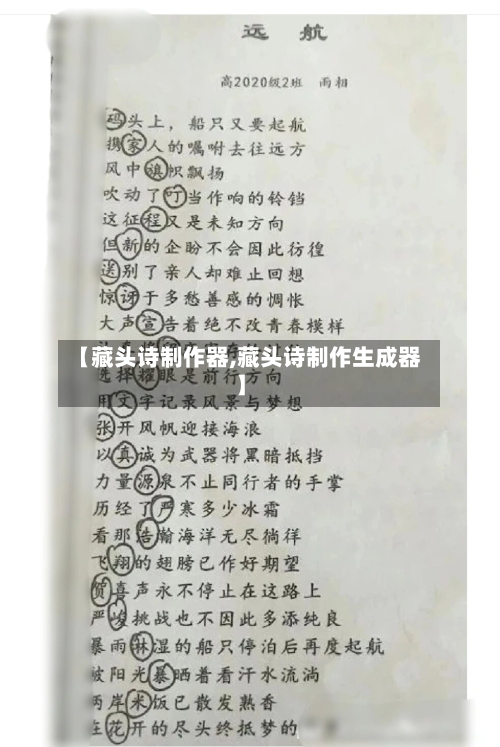 远 航
高2020级2班 雨相
码头上，船只又要起航
携家人的嘱咐去往远方
风中旗帜飘扬
吹动了叮当作响的铃铛
这征程又是未知方向
但新的企盼不会因此彷徨
送别了亲人却难止回想
惊讶于多愁善感的惆怅
大声宣告着绝不改青春模样
【藏头诗制作器,藏头诗制作生成器
】
选择耀眼是前行方向
用文字记录风景与梦想
张开风帆迎接海浪
以真诚为武器将黑暗抵挡
力量源泉不止同行者的手掌
历经了严寒多少冰霜
看那浩瀚海洋无尽徜徉
飞翔的翅膀已作好期望
贺喜声永不停止在这路上
严峻挑战也不因此多添纯良
暴雨淋湿的船只停泊后再度起航
被阳光暴晒着看汗水流淌
两岸米饭已散发熟香
在花开的尽头终抵梦的